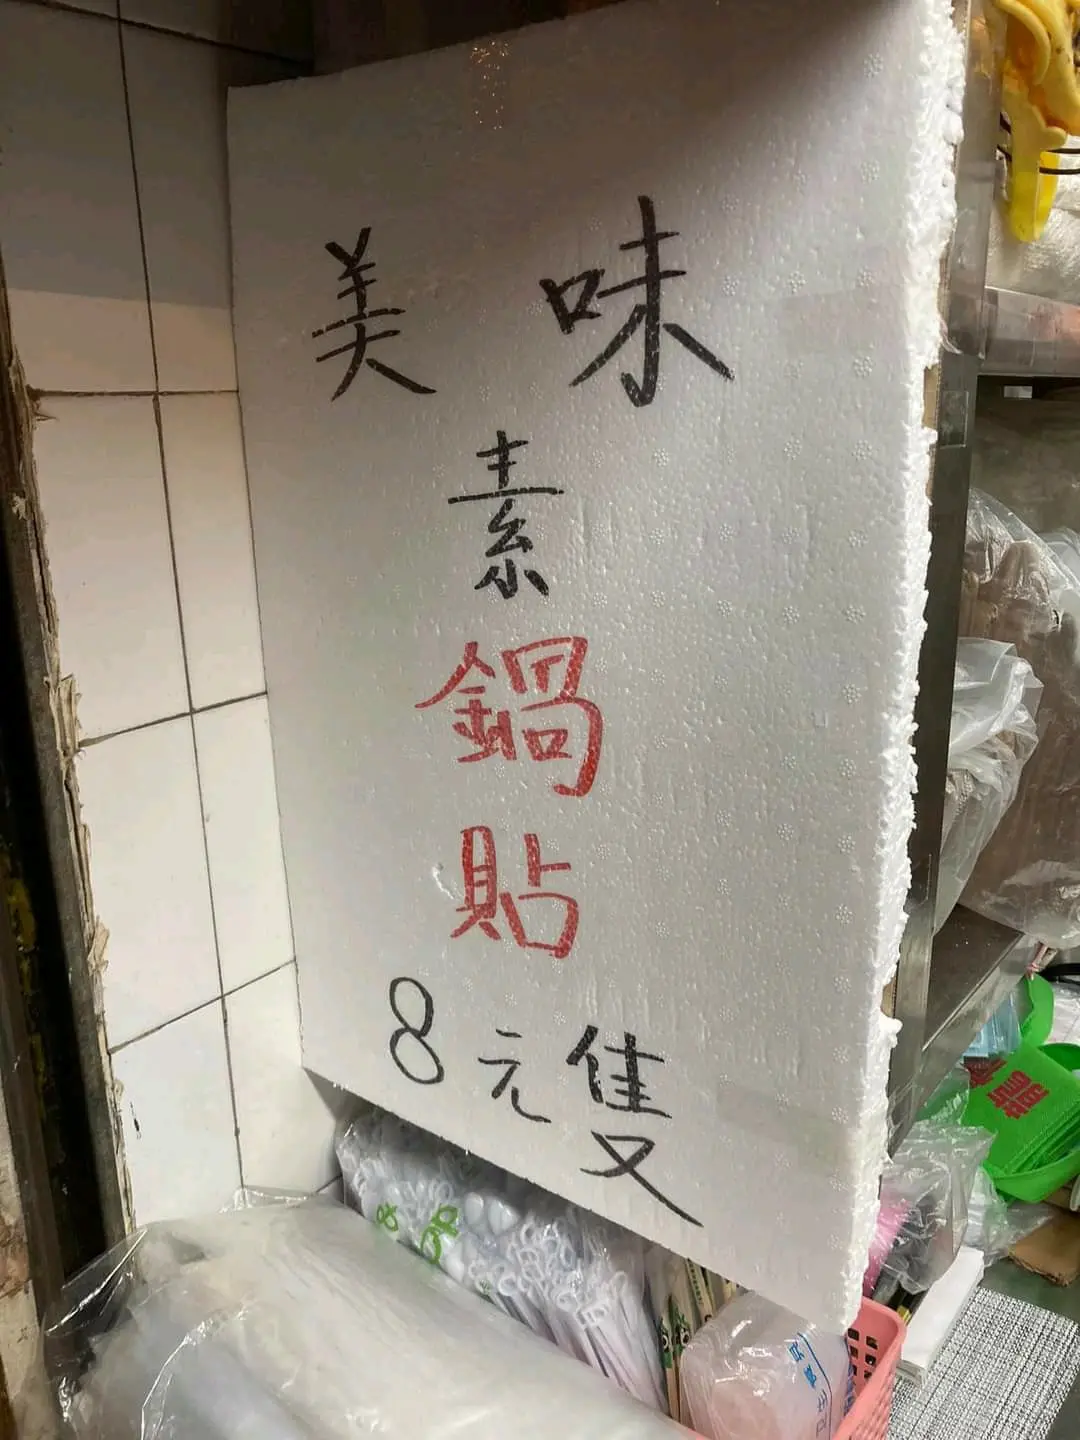 美味
素
鍋
貼
8元隻